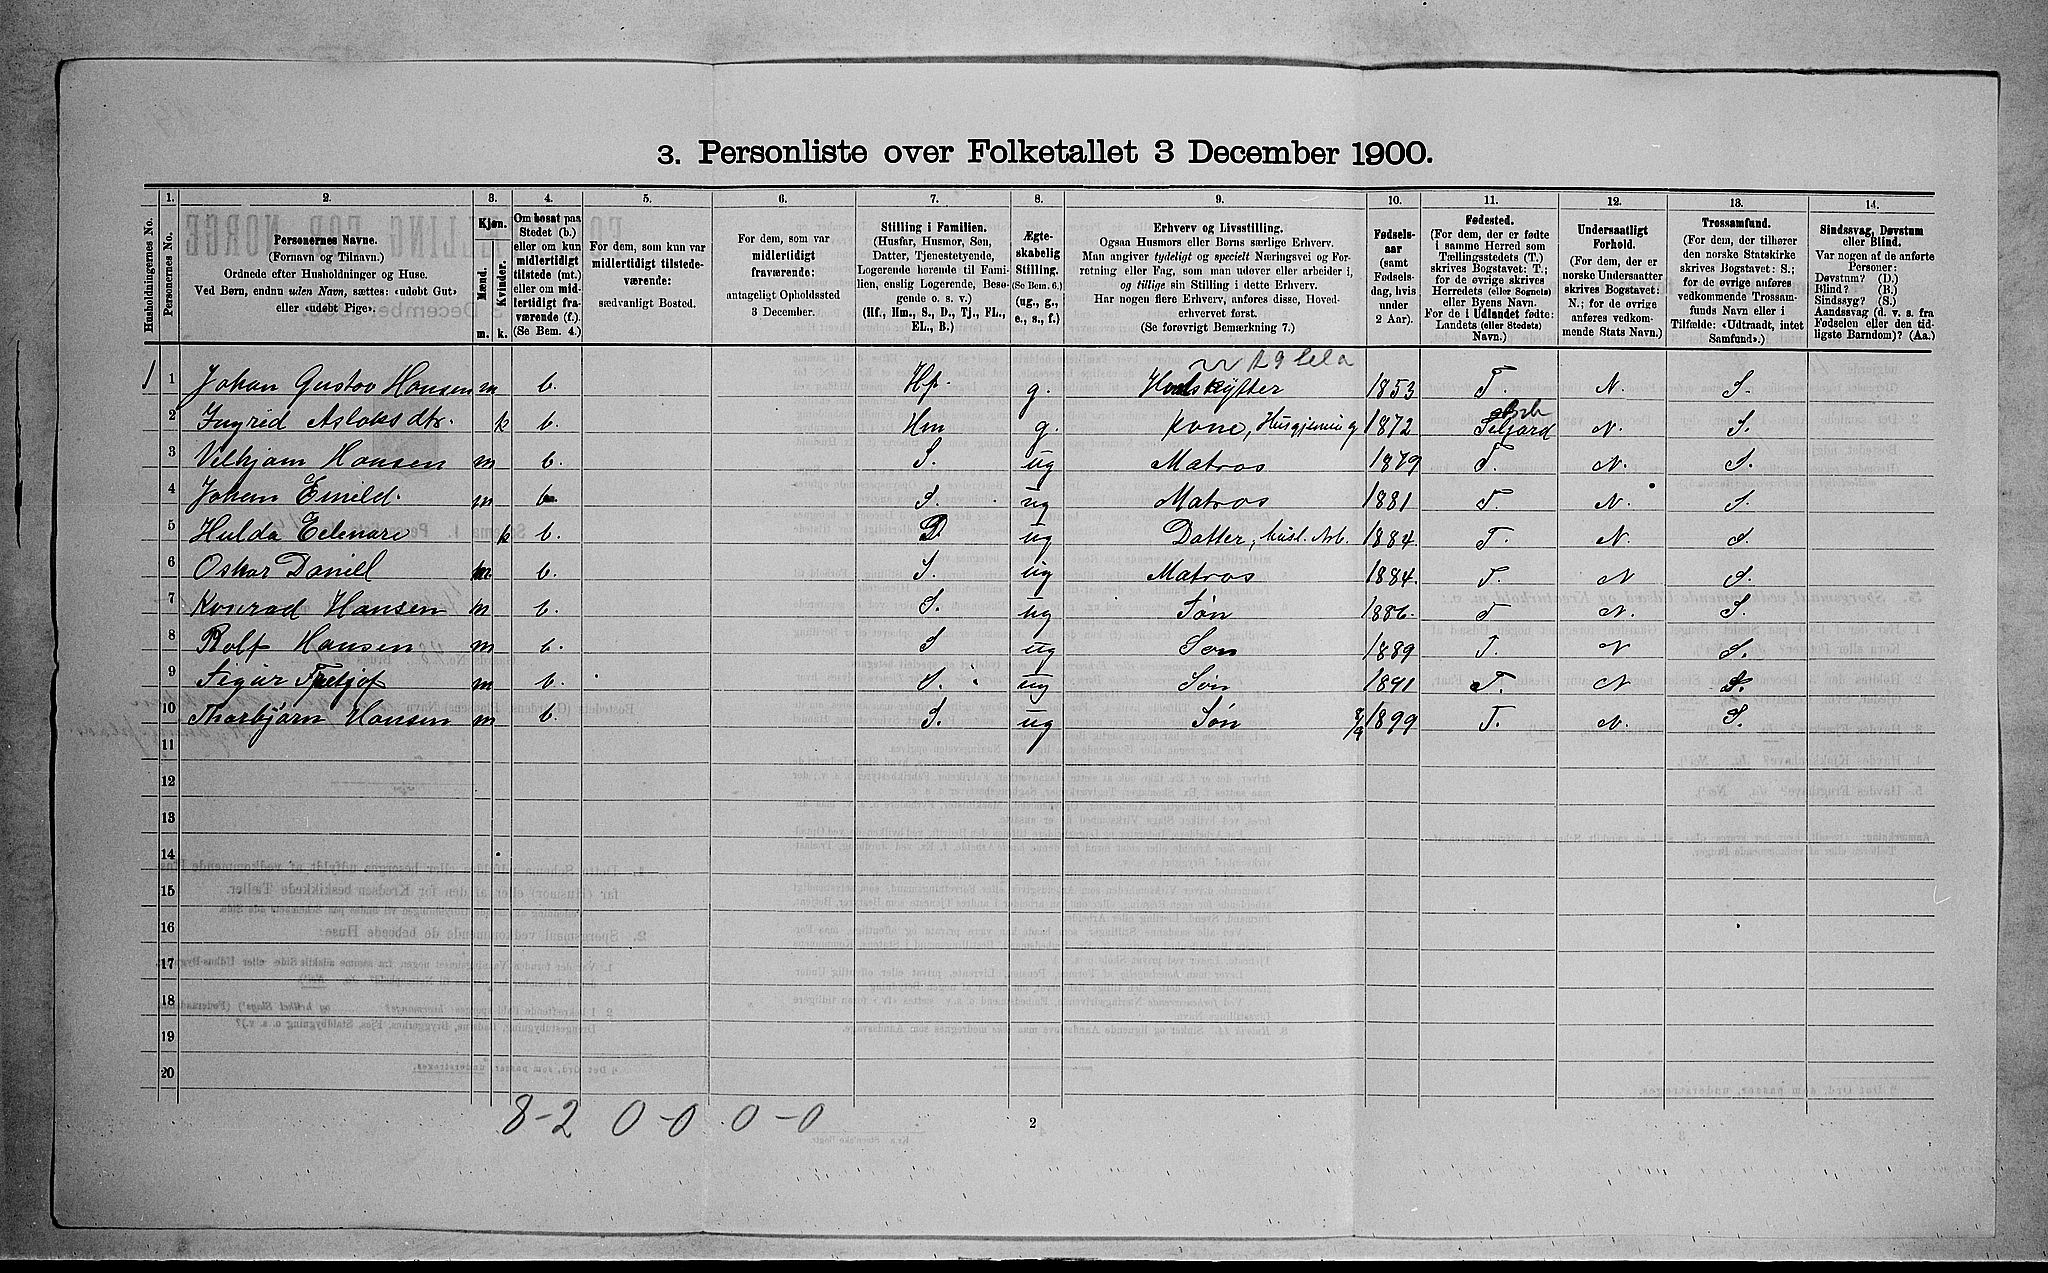 3. Personliste over Folketallet 3 December 1900.
Husholdningernes No.
1. Personernes No.
2. Personernes Navne. (Fornavn og Tilnavn.) Ordnede efter Husholdninger og Huse. Ved Børn, endnu uden Navn, sættes: «udøbt Gut» eller «udøbt Pige».
3. Kjøn. Mænd. m. Kvinder. k.
4. Om bosat paa Stedet (b.) eller om kun midlertidigt tilstede (mt.) eller om midlertidigt fraværende (f.). (Se Bem. 4.)
5. For dem, som kun var midlertidigt tilstedeværende: sædvanligt Bosted.
6. For dem, som var midlertidigt fraværende: antageligt Opholdssted 3 December.
7. Stilling i Familien. (Husfar, Husmor, Søn, Datter, Tjenestetyende, Logerende hørende til Familien, enslig Logerende, Besøgende o. s. v.) (Hf., Hm., S., D., Tj., FL., EL., B.)
8. Ægteskabelig Stilling. (Se Bem. 6.) (ug., g., e., s., f.)
9. Erhverv og Livsstilling. Ogsaa Husmors eller Børns særlige Erhverv. Man angiver tydeligt og specielt Næringsvei og Forretning eller Fag, som man udover eller arbeider i, og tillige sin Stilling i dette Erhverv. Har nogen flere Erhverv, anføres disse, Hovederhvervet først. (Se forøvrigt Bemærkning 7.)
10. Fødselsaar (samt Fødselsdag, hvis under 2 Aar).
11. Fødested. (For dem, der er fødte i samme Herred som Tællingsstedets (T.) skrives Bogstavet: T.; for de øvrige skrives Herredets (eller Sognets) eller Byens Navn. For de i Udlandet fødte: Landets (eller Stedets) Navn.)
12. Undersaatligt Forhold. (For dem, der er norske Undersaatter skrives Bogstavet: N.; for de øvrige anføres vedkommende Stats Navn.)
13. Trossamfund. (For dem, der tilhører den norske Statskirke skrives Bogstavet: S.; for de øvrige anføres vedkommende Trossamfunds Navn eller i Tilfælde: «Udtraadt, intet Samfund».)
14. Sindssvag, Døvstum eller Blind. Var nogen af de anførte Personer: Døvstum? (D.) Blind? (B.) Sindssyg? (S.) Aandssvag (d. v. s. fra Fødselen eller den tidligste Barndom)? (Aa.)
1 1 Johan Gustav Hansen m b. Hf. g. 1853 T. N. S.
2 Ingrid Aslaksdtr. k b. Hm g. Kone, Husgjerning 1872 Seljord N. S.
3 Vilhjam Hansen m b. S. ug Matros 1879 T. N. S.
4 Johan Emild. m b S. ug Matros 1881 T. N. S.
5 Hulda k b. D. ug Datter, husl. Arb. 1884. T. N. S.
6 Oskar Daniel m b. S. ug Matros 1884. T. N S.
7 Konrad Hansen m b. S. ug Søn 1886. T N. S.
8 Rolf Hansen m b. S ug Søn 1889 T. N S.
9 Sigur m b. S. ug Søn 1891 T. N S.
10 Thorbjørn Hansen m b. S. ug Søn 8/9 1899 T. N. S.
11
12
13
14
15
16
17
18
19
20
8-2 0-0 0-0
2